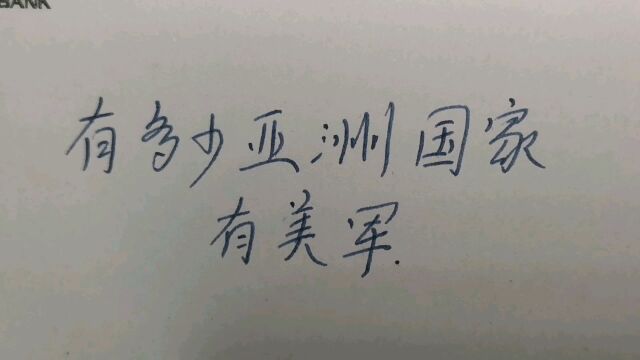 BANK
有多少亚洲国家
有美军.